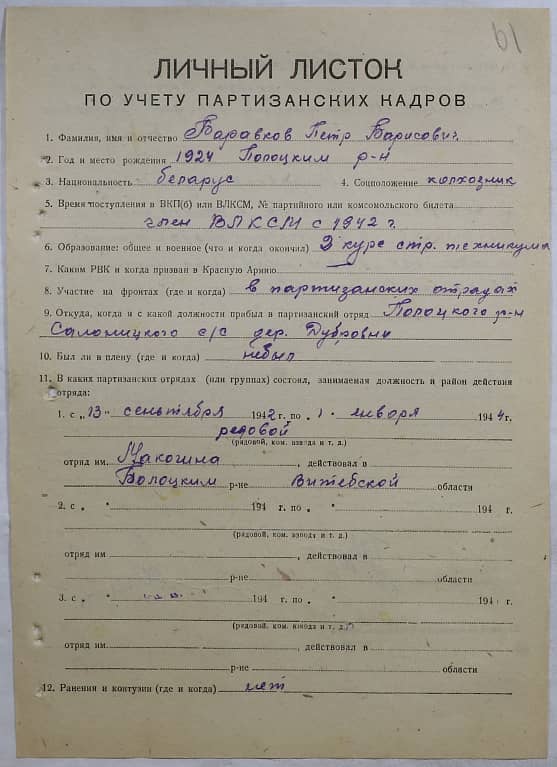 61
ЛИЧНЫЙ ЛИСТОК
ПО УЧЕТУ ПАРТИЗАНСКИХ КАДРОВ
1. Фамилия, имя и отчество Баравков Петр Барисович
2. Год и место рождения 1924 Полоцким р-н
3. Национальность беларус 4. Соцположение колхозник
5. Время поступления в ВКП(б) или ВЛКСМ, № партийного или комсомольского билета
член ВЛКСМ с 1942 г.
6. Образование: общее и военное (что и когда окончил) 2 курс стр. техникума
7. Каким РВК и когда призван в Красную Армию —
8. Участие на фронтах (где и когда) в партизанских отрадах
9. Откуда, когда и с какой должности прибыл в партизанский отряд Полоцкого р-н
Саломицкого с/с дер. Дубровни
10. Был ли в плену (где и когда) небыл
11. В каких партизанских отрядах (или группах) состоял, занимаемая должность и район действия
отряда:
1. с „13" сеньтября 1942 г. по „1" января 1944 г.
редовой
(рядовой, ком. взвода и т. д.)
отряд им. Макогина, действовал в
Полоцким р-не Витебской области
2. с „ " 194 г. по „ " 194 г.
(рядовой, ком. взвода и т. д.)
отряд им , действовал в
р-не области
3. с „ " 194 г. по „ " 194 г.
(рядовой, ком. взвода и т. д.)
отряд им. , действовал в
р-не области
12. Ранения и контузии (где и когда) нет